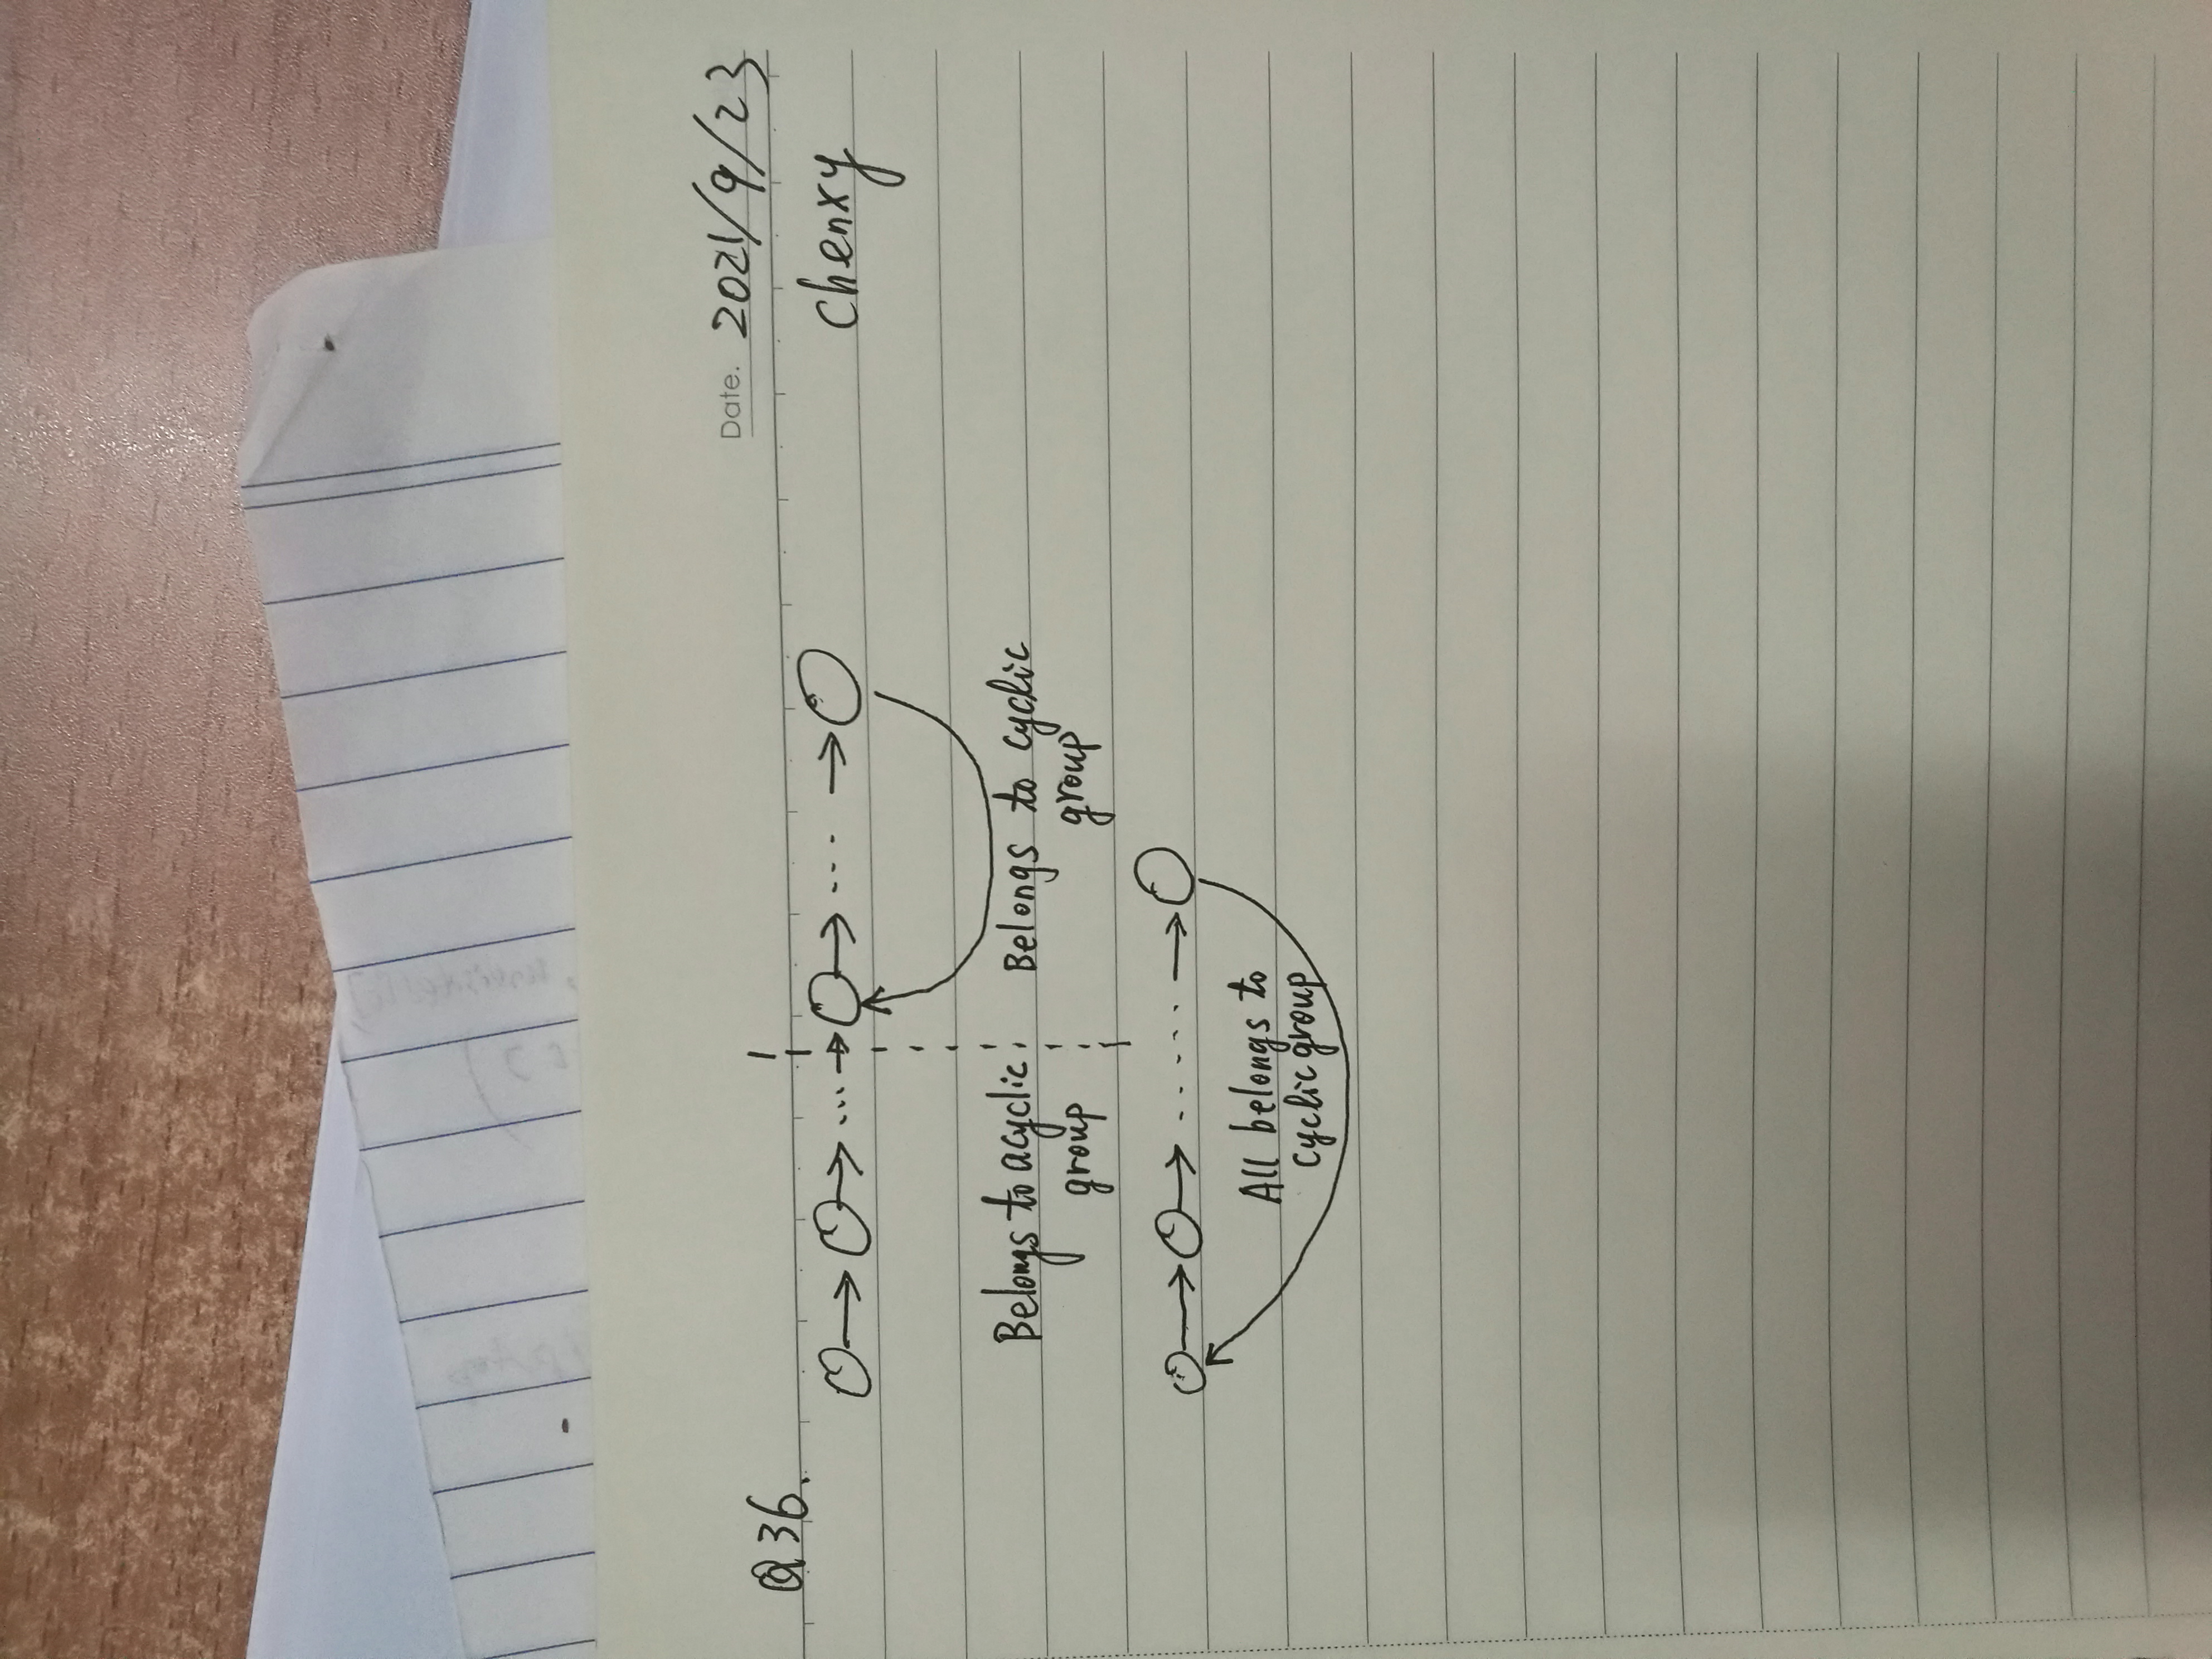 Date. 2021/9/23
Q36.
Chenxy
Belongs to acyclic
group
Belongs to cyclic
group
All belongs to
cyclic group